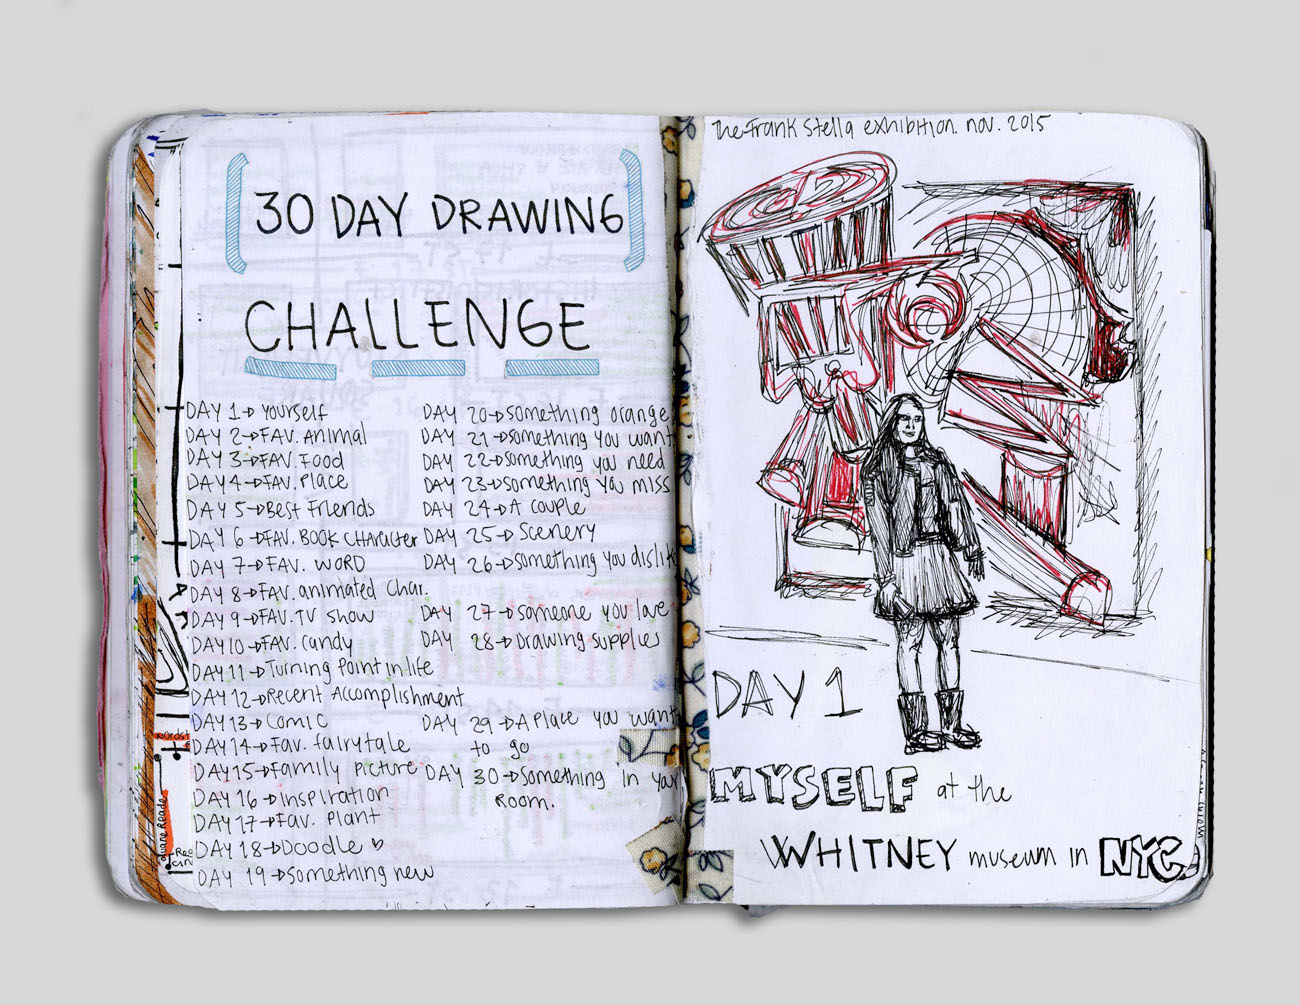 30 DAY DRAWING
CHALLENGE
DAY 1→ yourself
DAY 2→FAV. Animal
DAY 3→FAV. Food
DAY 4→ FAV. Place
DAY 5→Best Friends
DAY 6→FAV. BOOK CHaracter
DAY 7→ FAV. WORD
DAY 8→ Fav. animated Char.
DAY 9→FAV. TV Show
DAY 10→FAV. candy
DAY 11→Turning Point in life
DAY 12→Recent Accomplishment
DAY 13→ Comic
DAY 14→ Fav. fairytale
DAY 15→Family Picture
DAY 16→ inspiration
DAY 17→ Fav. Plant
DAY 18→Doodle ♡
DAY 19→Something new
DAY 20→something orange
DAY 21→something you want
DAY 22→something you need
DAY 23→something you miss
DAY 24→A couple
DAY 25→ Scenery
DAY 26→something you dislik
DAY 27→someone you love
DAY 28→Drawing supplies
DAY 29→A Place you want
to go
DAY 30→Something in you
Room.
The Frank Stella exhibition. nov. 2015
DAY 1
MYSELF at the
WHITNEY museum in NYC.